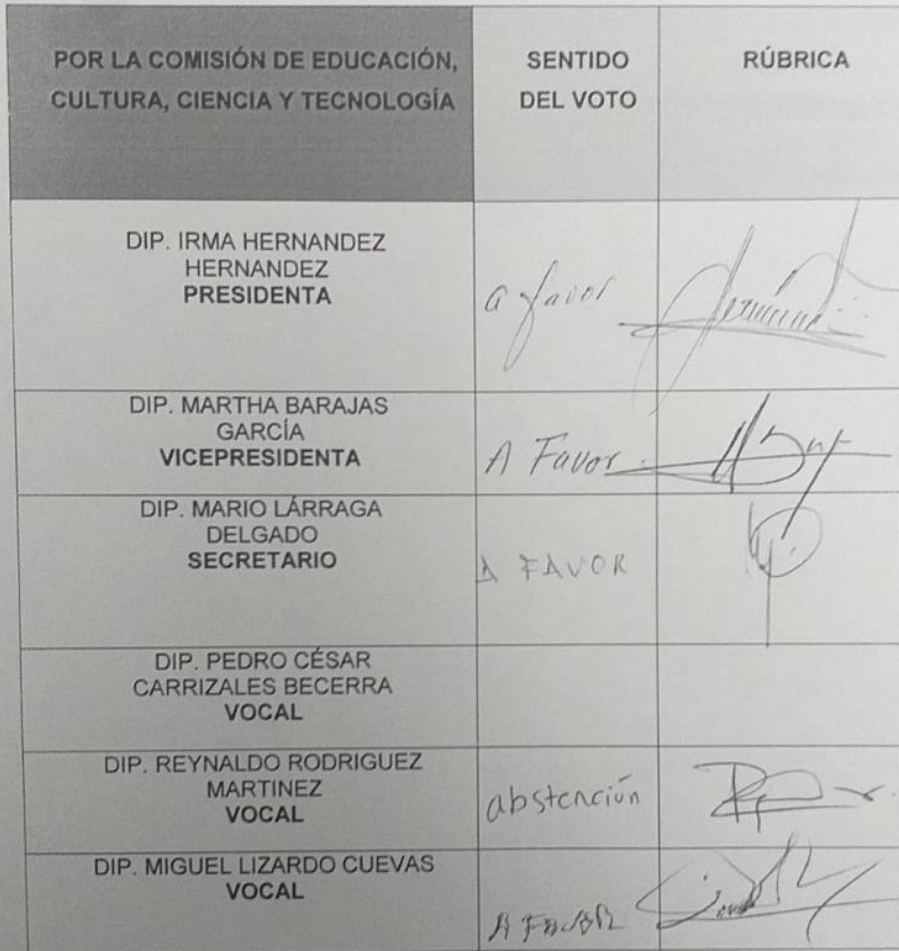 POR LA COMISIÓN DE EDUCACIÓN,
CULTURA, CIENCIA Y TECNOLOGÍA
SENTIDO
DEL VOTO
RÚBRICA
DIP. IRMA HERNANDEZ
HERNANDEZ
PRESIDENTA
a favor
DIP. MARTHA BARAJAS
GARCÍA
VICEPRESIDENTA
A Favor.
DIP. MARIO LÁRRAGA
DELGADO
SECRETARIO
A FAVOR
DIP. PEDRO CÉSAR
CARRIZALES BECERRA
VOCAL
DIP. REYNALDO RODRIGUEZ
MARTINEZ
VOCAL
abstención
DIP. MIGUEL LIZARDO CUEVAS
VOCAL
A FAVOR